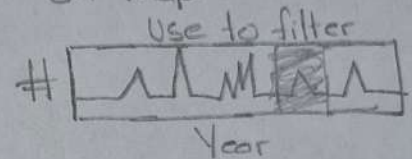 use to filter
#
Year